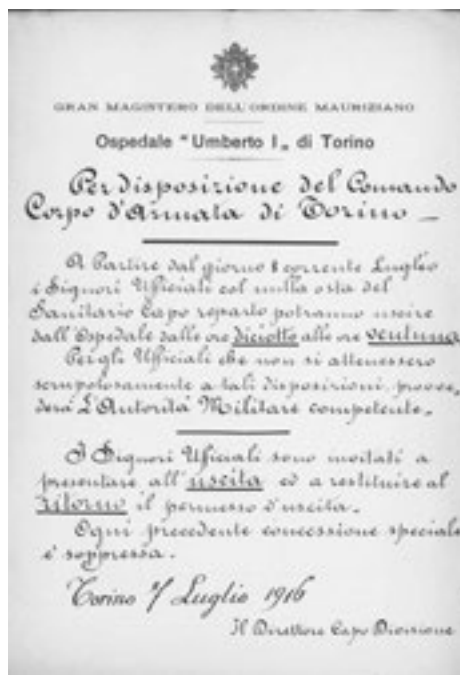 GRAN MAGISTERO DELL'ORDINE MAURIZIANO
Ospedale "Umberto I„ di Torino
Per disposizione del Comando
Corpo d'Armata di Torino —
A Partire dal giorno 8 corrente Luglio
i Signori Ufficiali col nulla osta del
Sanitario Capo reparto potranno uscire
dall'Ospedale dalle ore diciotto alle ore ventuna
Per gli Ufficiali che non si attenessero
scrupolosamente a tali disposizioni, provve-
derà L'Autorità Militare competente.
I Signori Ufficiali sono invitati a
presentare all'uscita ed a restituire al
ritorno il permesso d'uscita.
Ogni precedente concessione speciale
è soppressa.
Torino Luglio 1916
Il Direttore Capo Divisione